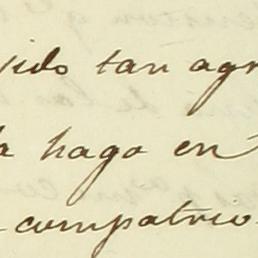 sido tan agr
a haga en
compatrio